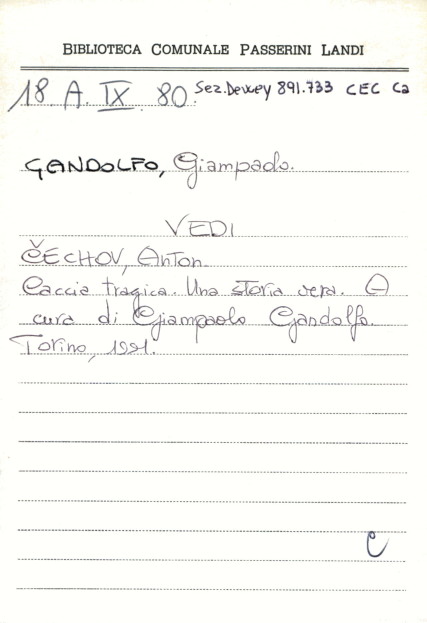 BIBLIOTECA COMUNALE PASSERINI LANDI
18. A. IX. 80. Sez. Dewey 891.733 CEC Ca
GANDOLFO, Giampaolo.
VEDI
ČECHOV, Anton
Caccia tragica. Una storia vera. A
cura di Giampaolo Gandolfo.
Torino, 1991.
C